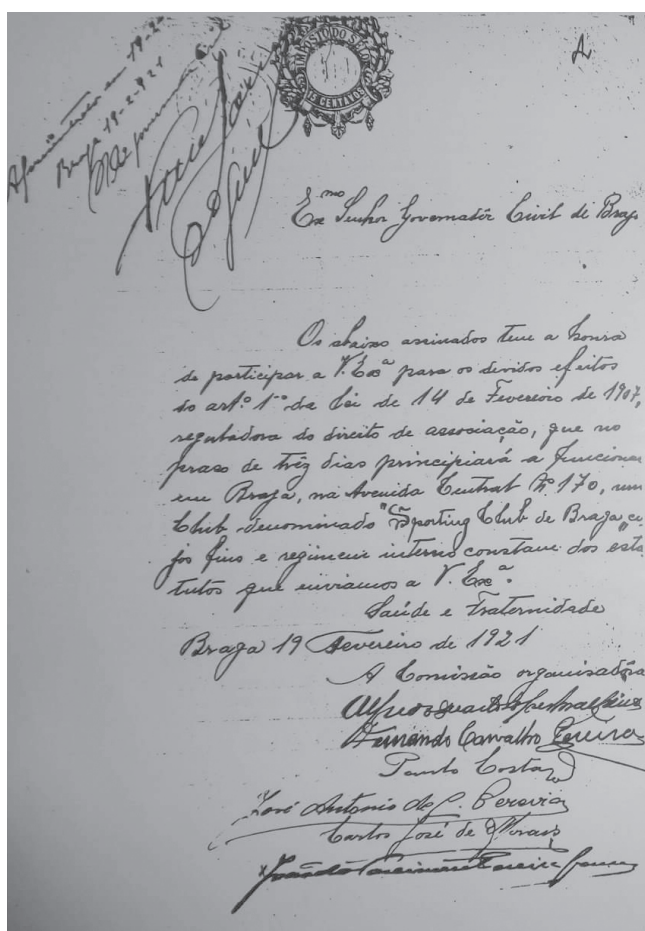 IMPOSTO DO SELO
15 CENTAVOS
Braga 19-2-921
Exmo Senhor Governador Civil de Braga
Os abaixo assinados tem a honra
de participar a V. Exª para os devidos efeitos
do artº 1º da lei de 14 de Fevereiro de 1907,
reguladora do direito de associação, que no
praso de trêz dias principiará a funcionar
em Braga, na Avenida Central Nº 170, um
Club denominado "Sporting Club de Braga" cu
jos fins e regimen interno constam dos esta
tutos que enviamos a V. Exª.
Saúde e Fraternidade
Braga 19 Fevereiro de 1921
A Comissão organisadôra
Fernando Carvalho Pereira
Paulo Costa
José Antonio de C. Pereira
Carlos José de Morais